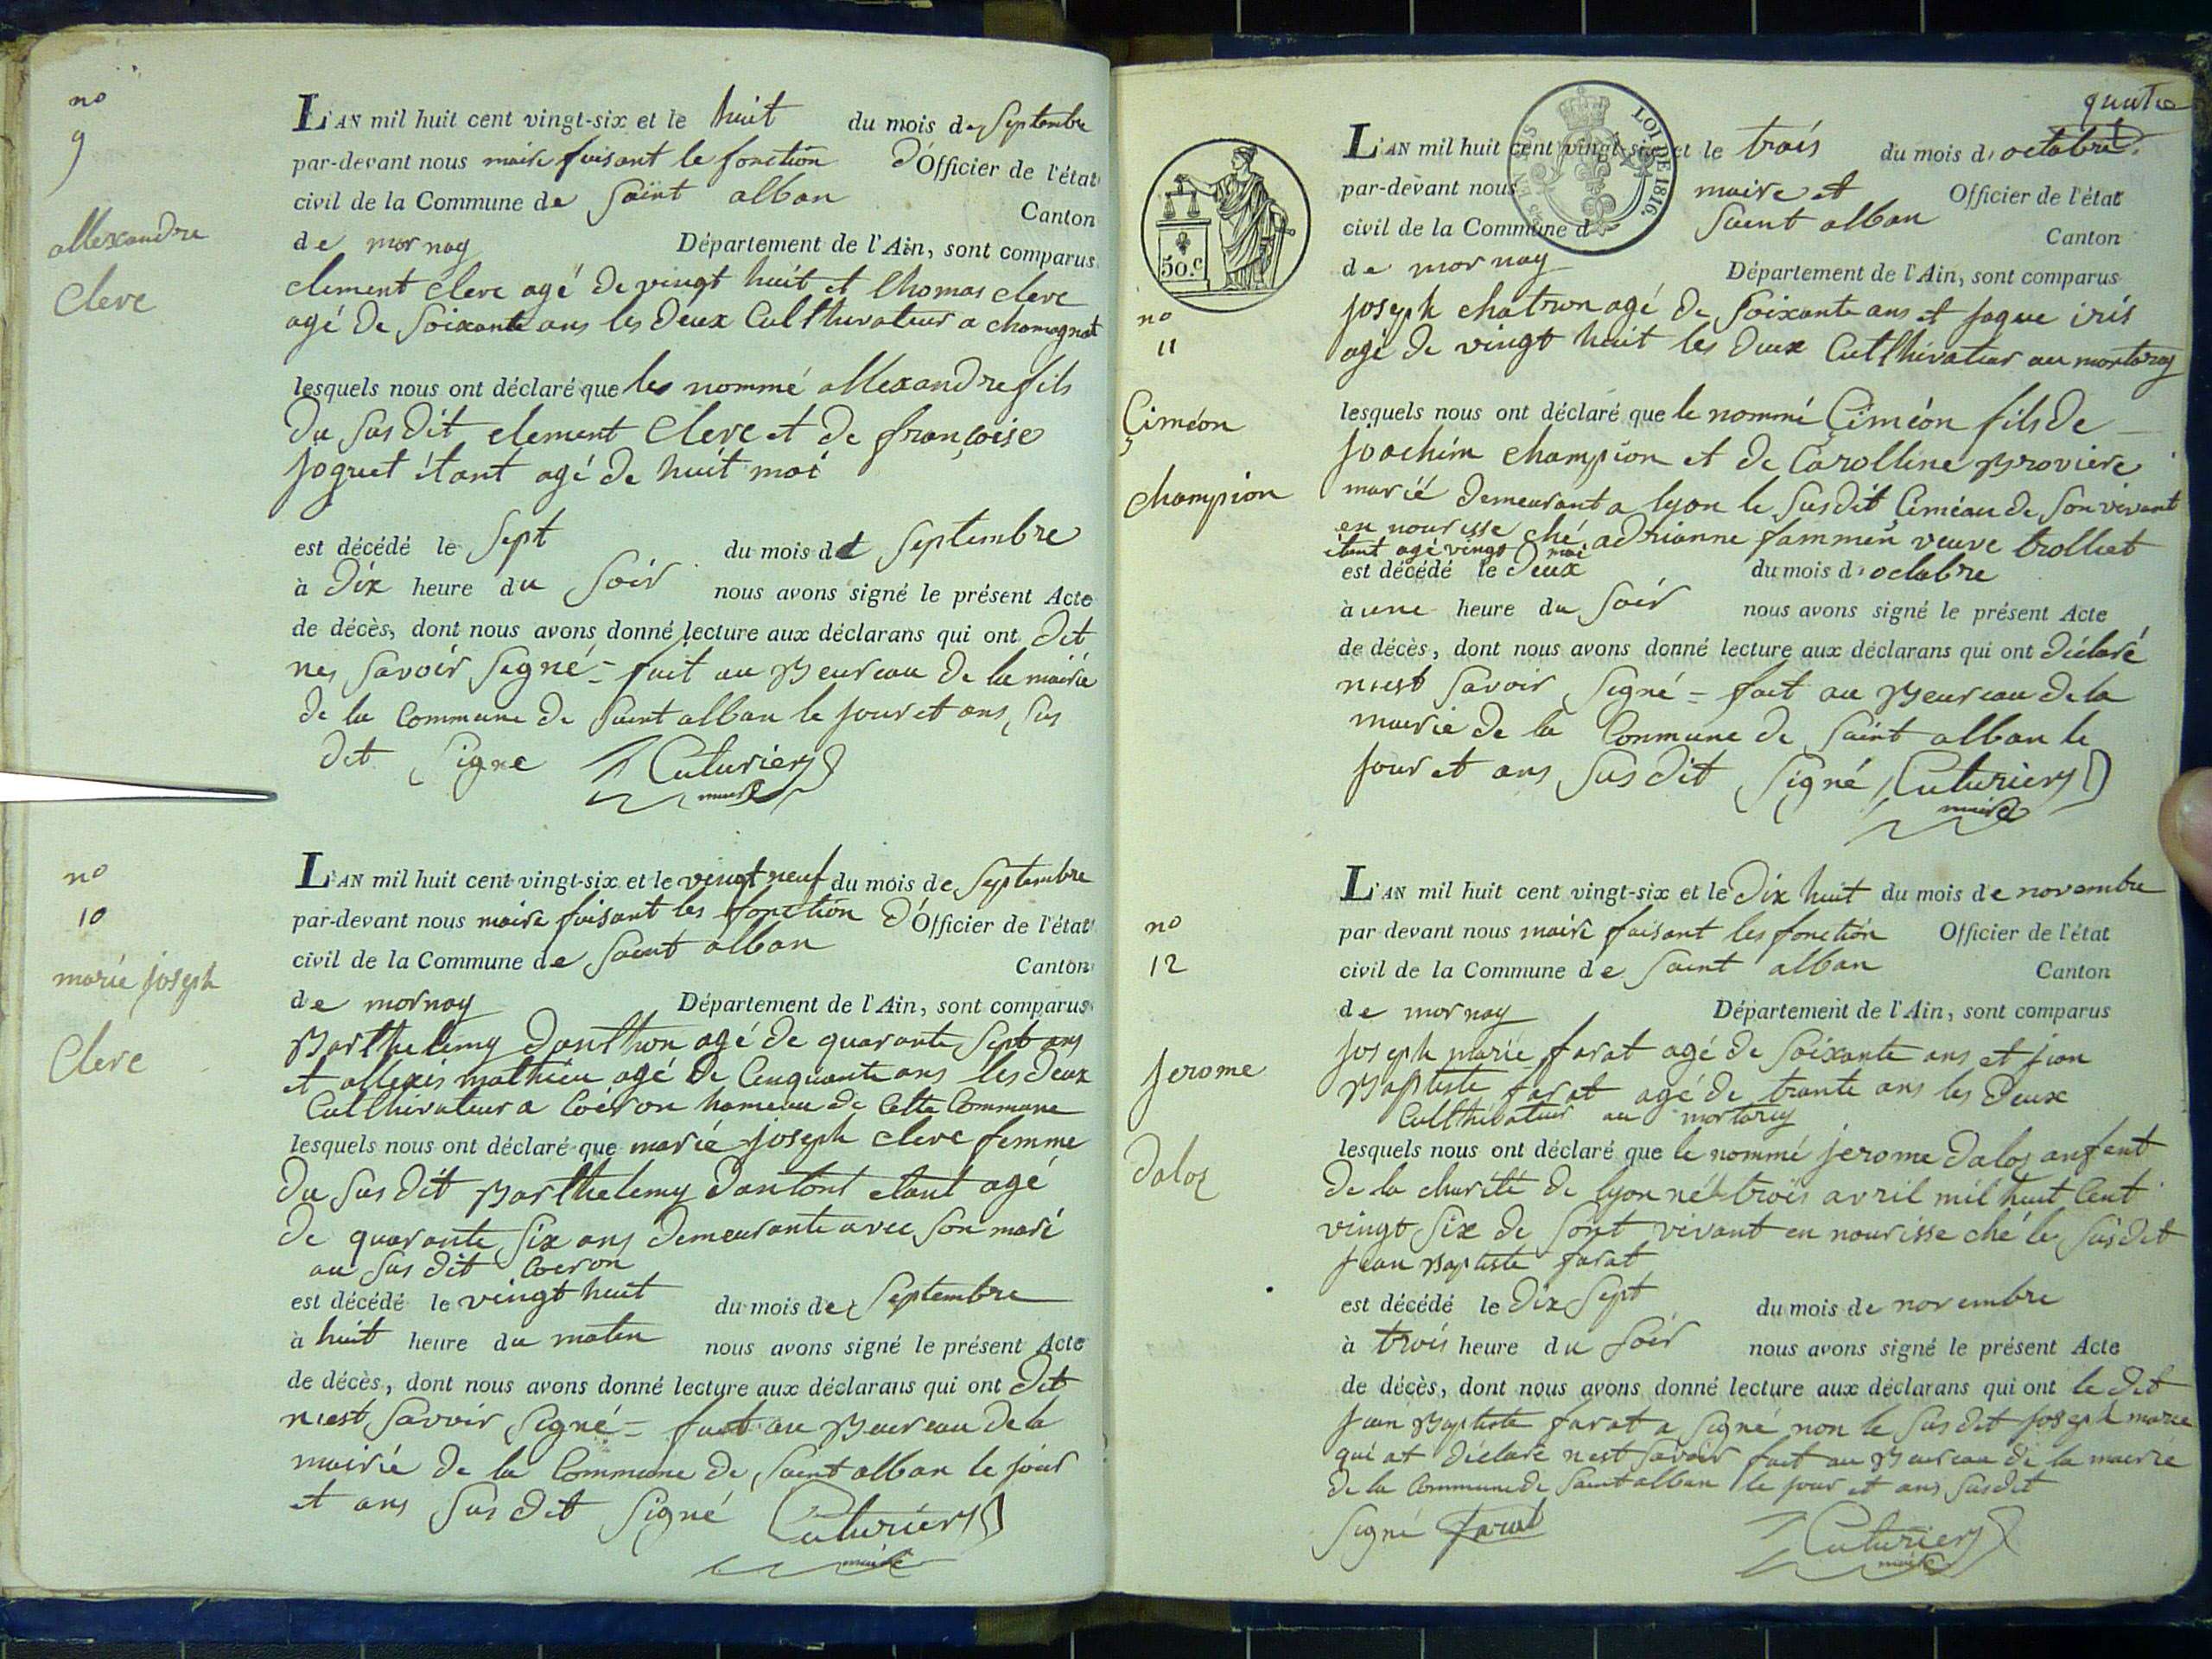 no
9
allexandre
Cleve
L'AN mil huit cent vingt-six et le huit du mois de Septembre
par-devant nous maire faisant le fonction d'Officier de l'état
civil de la Commune de Saint alban Canton
de mornay Département de l'Ain, sont comparus
clement Cleve agé de vingt huit et thomas cleve
agé de Soixante ans les deux Culthivateur a chamagnat
lesquels nous ont déclaré que les nommé allexandre fils
du Sus dit clement Cleve et de françoise
joguet étant agé de huit moi
est décédé le Sept du mois de Septembre
à dix heure du Soir nous avons signé le présent Acte
de décès, dont nous avons donné lecture aux déclarans qui ont dit
nes Savoir Segné = fait au Beureau de la mairie
de la Commune de Saint alban le jour et ans Sus
dit Signe Cuturier
maire
no
10
marie joseph
Cleve
L'AN mil huit cent vingt-six et le vingt neuf du mois de Septembre
par-devant nous maire faisant les fonction d'Officier de l'état
civil de la Commune de Saint alban Canton
de mornay Département de l'Ain, sont comparus
Barthelemy Donthon agé de quarante Sept ans
et allexis mathieu agé de Cinquante ans les deux
Culthivateur a Coéron hameau de Cette Commune
lesquels nous ont déclaré que marié joseph cleve femme
du Sus dit Barthelemy dantont etant agé
de quarante Six ans demeurante avec Son mari
au Sus dit Coeron
est décédé le vingt huit du mois de Septembre
à huit heure du matin nous avons signé le présent Acte
de décès, dont nous avons donné lecture aux déclarans qui ont dit
n'est Savoir Segné = fait au Beureau de la
mairie de la Commune de Saint alban le jour
et ans Sus dit Signé Cuturier
maire
quatre
LOI DE 1816.
50.c
L'AN mil huit cent vingt-six et le trois du mois d'octobre
par-devant nous maire et Officier de l'état
civil de la Commune d Saint alban Canton
de mornay Département de l'Ain, sont comparus
no
11
Çiméon
champion
joseph chatron agé de Soixante ans et jaque iris
agé de vingt huit les deux Culthivateur au mortaray
lesquels nous ont déclaré que le nommé Çiméon fils de
joachim champion et de Carolline Broviere
marié demeurant a lyon le Susdit Ciméon de Son vivant
en nourisse ché adrianne fammen veuve trolliet
étant agé vingt moi
est décédé le deux du mois d'octobre
à une heure du Soir nous avons signé le présent Acte
de décès, dont nous avons donné lecture aux déclarans qui ont déclaré
n'est Savoir Segné = fait au Beureau de la
mairie de la Conmune de Saint alban le
jour et ans Sus dit Signé Cuturier
maire
no
12
jerome
daloz
L'AN mil huit cent vingt-six et le dix huit du mois de novembre
par devant nous maire faisant les fonction Officier de l'état
civil de la Commune de Saint alban Canton
de mornay Département de l'Ain, sont comparus
joseph marie farat agé de Soixante ans et jean
Baptiste farat agé de trante ans les deux
Culthivateur au mortaray
lesquels nous ont déclaré que le nommé jerome daloz anfent
de la charité de lyon né le trois avril mil huit Cent
vingt Six de Sont vivant en nourisse ché le Susdit
jean Baptiste farat
est décédé le dix Sept du mois de novembre
à trois heure du Soir nous avons signé le présent Acte
de décès, dont nous avons donné lecture aux déclarans qui ont le dit
jean Baptiste farat a Signé non le Sus dit joseph marie
qui at déclaré n'est Savoir fait au Beureau de la mairie
de la Commune de Saint alban le jour et ans Susdit
Signé farat Cuturier
maire